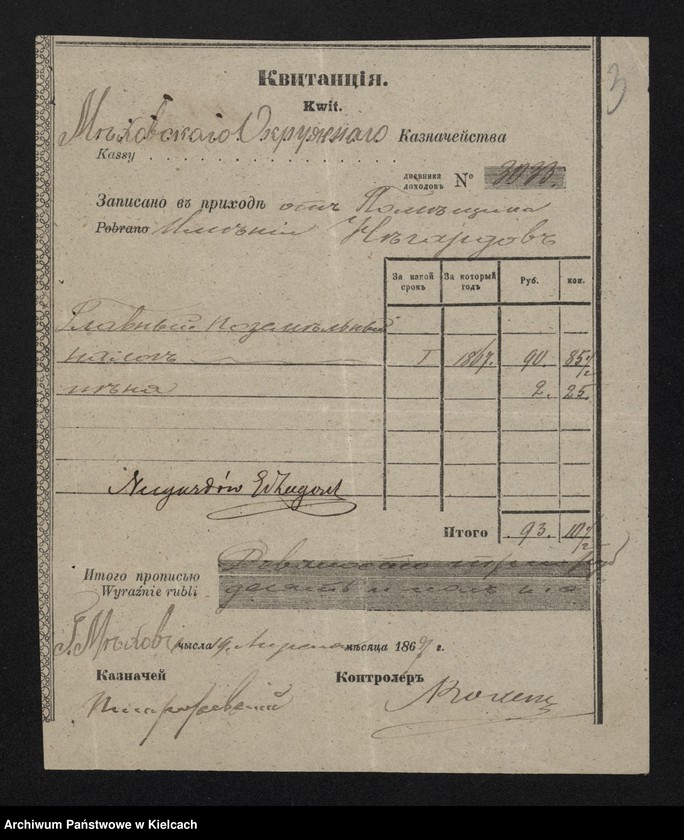 3
Квитанція.
Kwit.
Мѣховскаго Окружнаго Казначейства
Kassy
дневника
доходовъ № 3033.
Записано въ приходъ отъ Помѣщика
Pobrano Имѣнія Нѣгардовъ
За какой срокъ За который годъ Руб. коп.
Главный поземельный
налогъ I 1867. 90. 85 1/2
пѣна 2. 25.
Итого 93. 10 1/2
Итого прописью Девяносто три руб
Wyraźnie rubli десять и пол
Г. Мѣховъ числа 19. Апреля мѣсяца 1867 г.
Казначей Контролеръ
Archiwum Państwowe w Kielcach